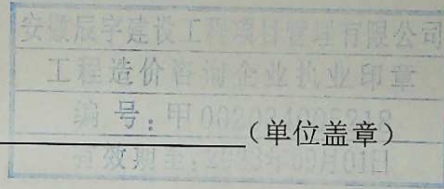 安徽辰宇建设工程项目管理有限公司
工程造价咨询企业执业印章
编号:甲
(单位盖章)
有效期至: 01日